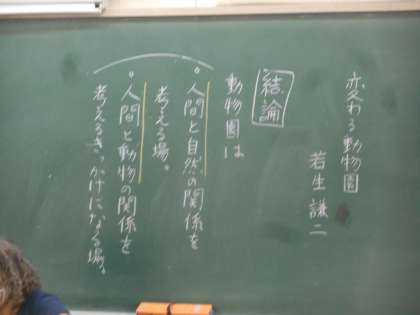 変わる動物園
若生謙二
結論
動物園は
。人間と自然の関係を
考える場。
。人間と動物の関係を
考えるきっかけになる場。